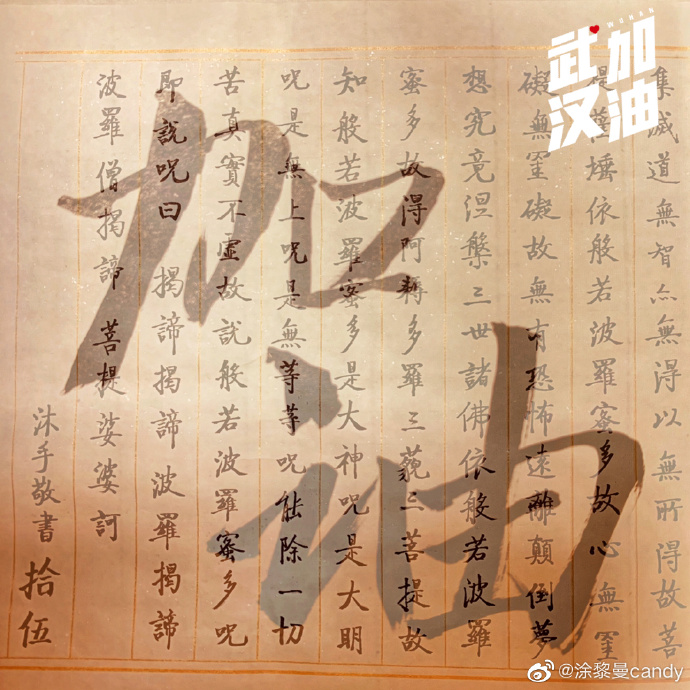 武汉加油
WUHAN
加油
集滅道無智亦無得以無所得故菩
提薩埵依般若波羅蜜多故心無罣
礙無罣礙故無有恐怖遠離顛倒夢
想究竟涅槃三世諸佛依般若波羅
蜜多故得阿耨多羅三藐三菩提故
知般若波羅蜜多是大神呪是大明
呪是無上呪是無等等呪能除一切
苦真實不虛故說般若波羅蜜多呪
即說呪曰 揭諦揭諦波羅揭諦
波羅僧揭諦 菩提娑婆訶
沐手敬書 拾伍
@涂黎曼candy